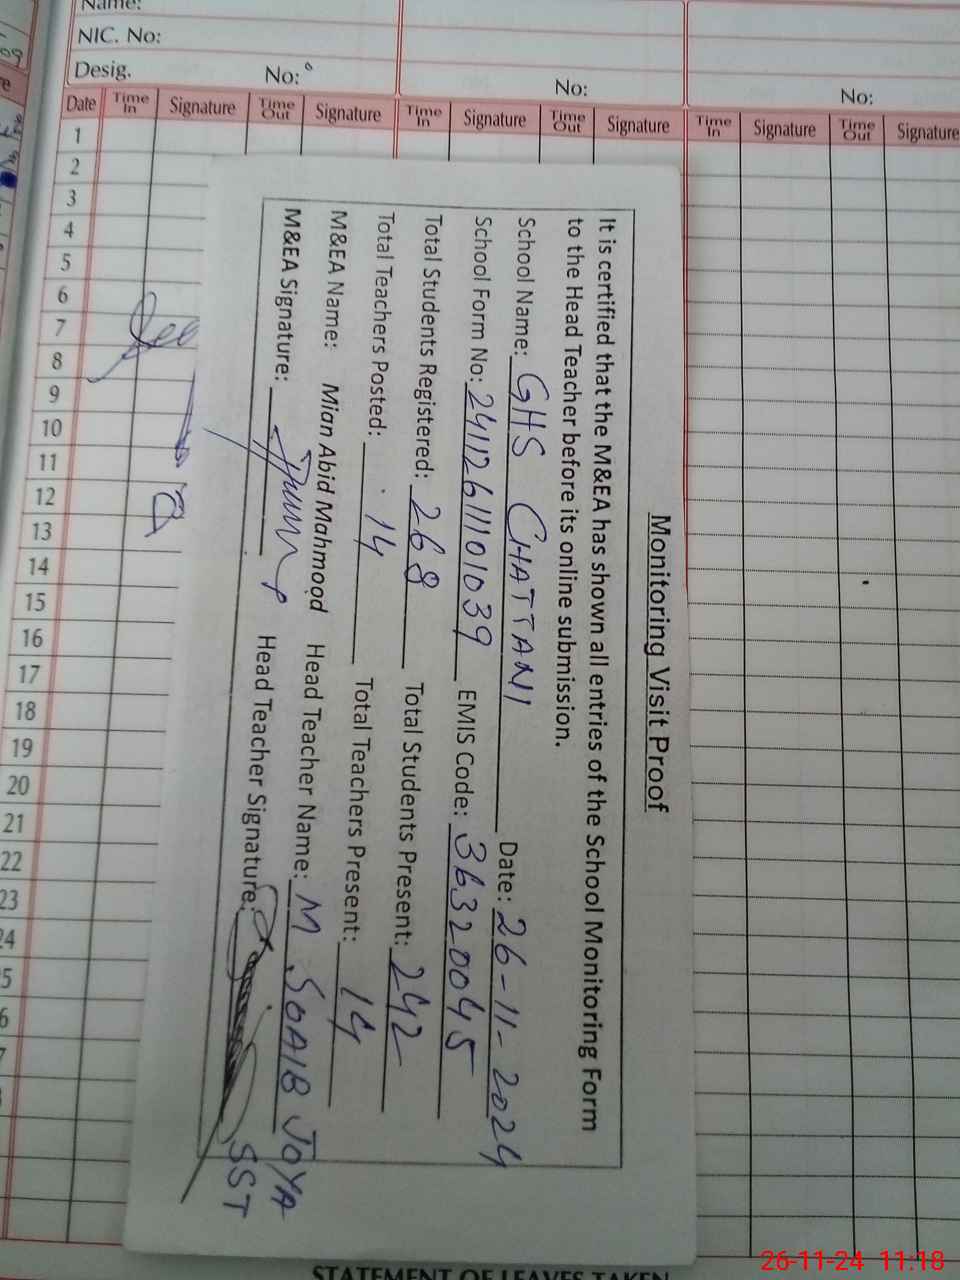 Name:
NIC. No:
Desig. No: No: No:
Date Time In Signature Time Out Signature Time In Signature Time Out Signature Time In Signature Time Out Signature
1
2
3
4
5
6
7
8
9
10
11
12
13
14
15
16
17
18
19
20
21
22
23
24
Monitoring Visit Proof
It is certified that the M&EA has shown all entries of the School Monitoring Form
to the Head Teacher before its online submission.
School Name: GHS CHATTANI Date: 26-11-2024
School Form No: 241126111101039 EMIS Code: 36320045
Total Students Registered: 268 Total Students Present: 242
Total Teachers Posted: 14 Total Teachers Present: 14
M&EA Name: Mian Abid Mahmood Head Teacher Name: M SOAIB JOYA
M&EA Signature: Head Teacher Signature: SST
STATEMENT OF LEAVES TAKEN
26-11-24 11:18